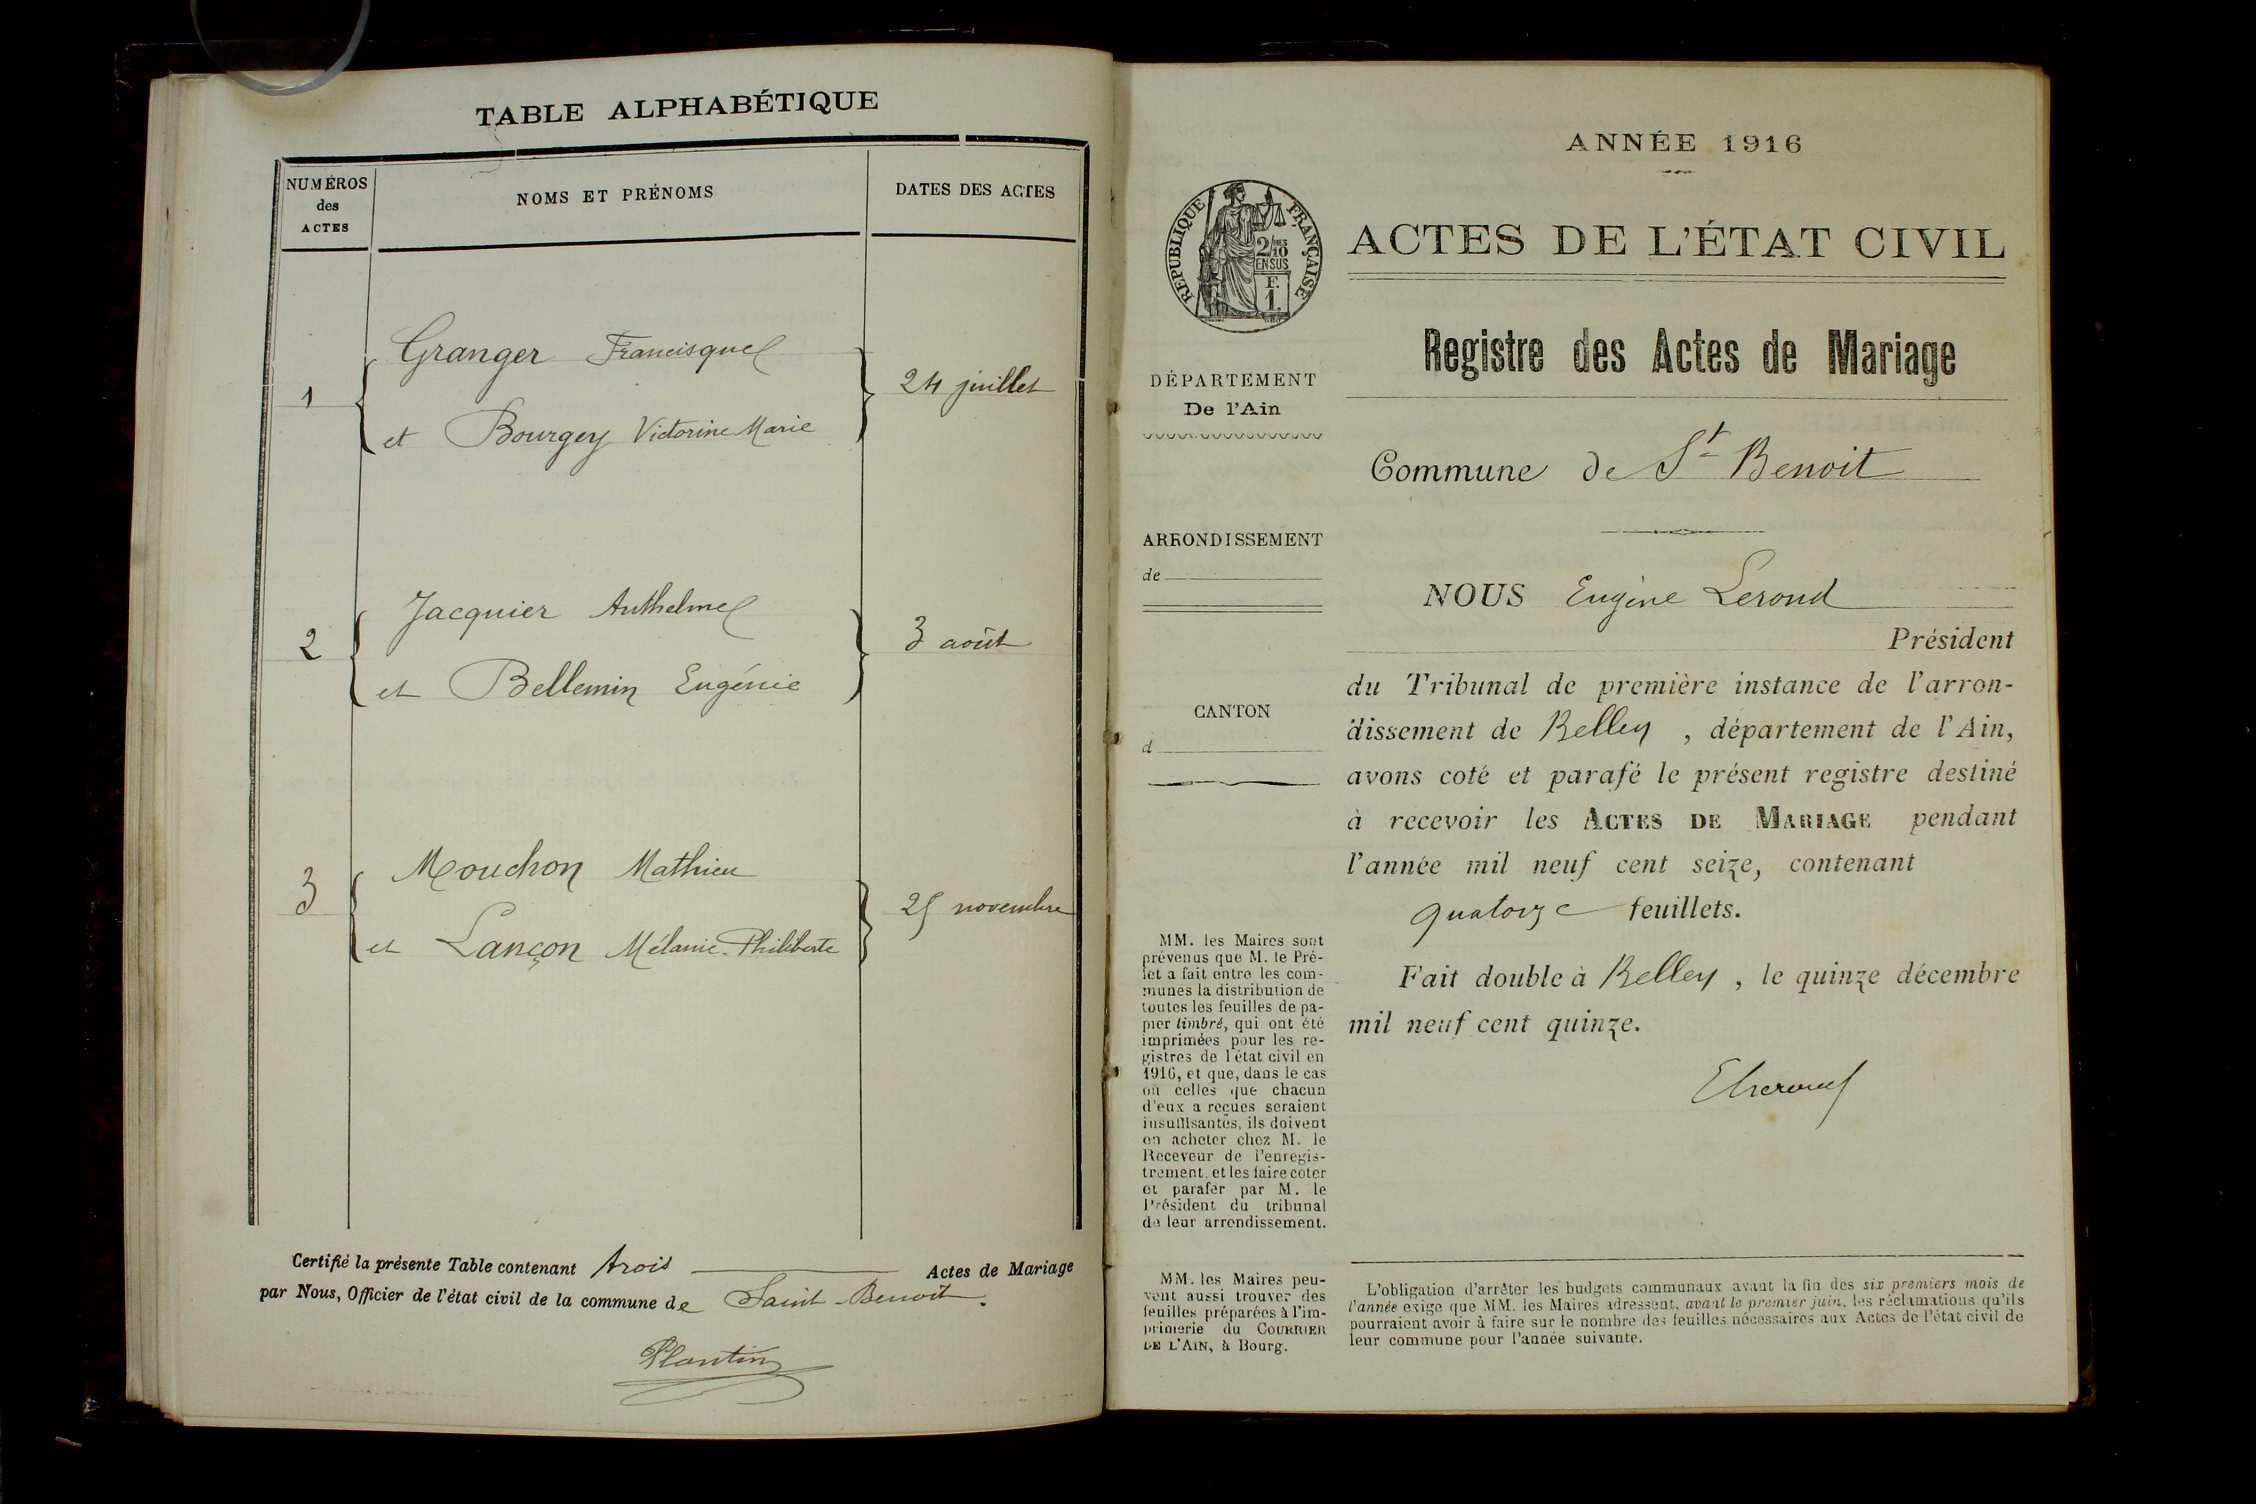 TABLE ALPHABÉTIQUE
NUMÉROS
des
ACTES
NOMS ET PRÉNOMS
DATES DES ACTES
Granger Francisque
1
24 juillet
et Bourgey Victorine Marie
Jacquier Anthelme
2
3 août
et Bellemin Eugénie
Mouchon Mathieu
3
25 novembre
et Lançon Mélanie-Philiberte
Certifié la présente Table contenant trois Actes de Mariage
par Nous, Officier de l'état civil de la commune de Saint-Benoît.
Plantin
ANNÉE 1916
RÉPUBLIQUE FRANÇAISE
2/10
EN SUS
F.
1.
ACTES DE L'ÉTAT CIVIL
Registre des Actes de Mariage
DÉPARTEMENT
De l'Ain
Commune de St Benoit
ARRONDISSEMENT
de
CANTON
d
NOUS Eugène Lerond
Président
du Tribunal de première instance de l'arron-
dissement de Belley, département de l'Ain,
avons coté et parafé le présent registre destiné
à recevoir les ACTES DE MARIAGE pendant
l'année mil neuf cent seize, contenant
quatorze feuillets.
Fait double à Belley, le quinze décembre
mil neuf cent quinze.
MM. les Maires sont
prévenus que M. le Pré-
fet a fait entre les com-
munes la distribution de
toutes les feuilles de pa-
pier timbré, qui ont été
imprimées pour les re-
gistres de l'état civil en
1916, et que, dans le cas
où celles que chacun
d'eux a reçues seraient
insuffisantes, ils doivent
en acheter chez M. le
Receveur de l'enregis-
trement, et les faire coter
et parafer par M. le
Président du tribunal
de leur arrondissement.
MM. les Maires peu-
vent aussi trouver des
feuilles préparées à l'im-
primerie du COURRIER
DE L'AIN, à Bourg.
L'obligation d'arrêter les budgets communaux avant la fin des six premiers mois de
l'année exige que MM. les Maires adressent, avant le premier juin, les réclamations qu'ils
pourraient avoir à faire sur le nombre des feuilles nécessaires aux Actes de l'état civil de
leur commune pour l'année suivante.